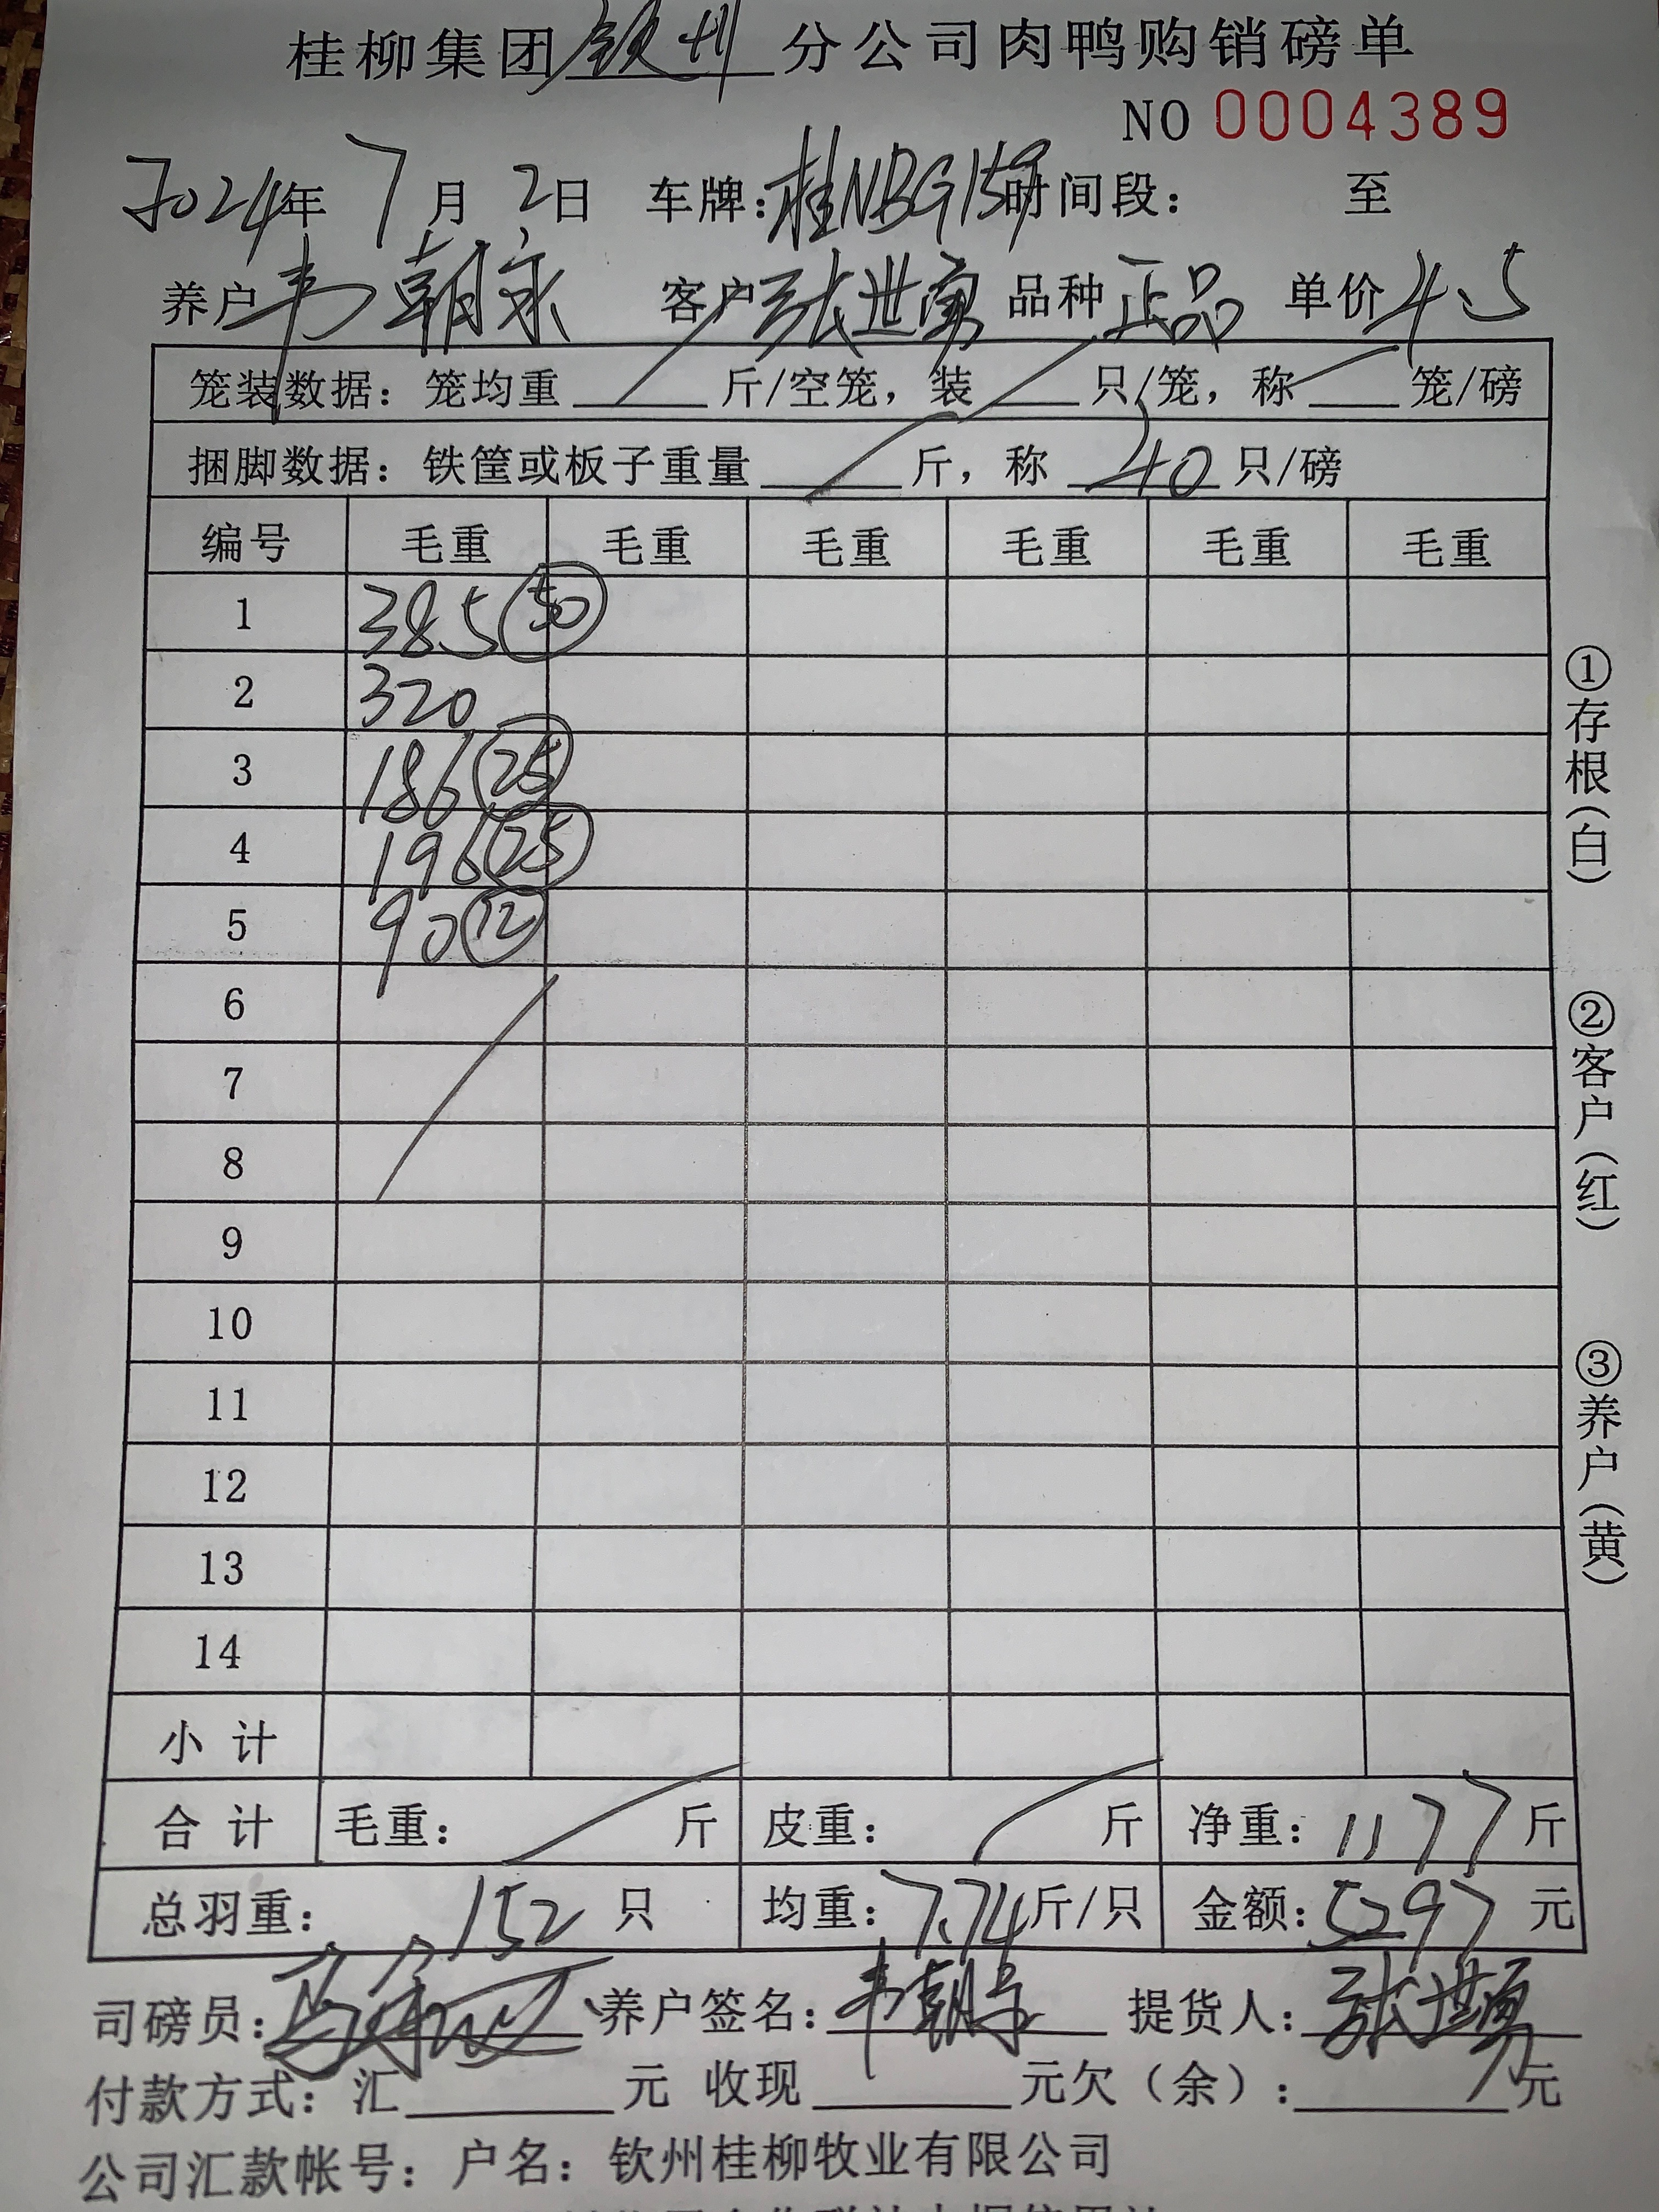 桂柳集团钦州分公司肉鸭购销磅单
NO 0004389
2024年 7月 2日 车牌:桂NBG159 时间段: 至
养户 韦朝 客户 张世勇 品种 正品 单价 4.5
笼装数据: 笼均重 斤/空笼, 装 只/笼, 称 笼/磅
捆脚数据: 铁筐或板子重量 斤, 称 40 只/磅
编号 毛重 毛重 毛重 毛重 毛重 毛重
1 385 50
2 320
3 186 25
4 196 25
5 90 12
6
7
8
9
10
11
12
13
14
小计
合计 毛重: 斤 皮重: 斤 净重: 1177 斤
总羽重: 152 只 均重: 7.74 斤/只 金额: 5297 元
司磅员: 养户签名: 韦朝 提货人: 张世勇
付款方式: 汇 元 收现 元欠(余): 元
公司汇款帐号: 户名: 钦州桂柳牧业有限公司
①存根(白)
②客户(红)
③养户(黄)